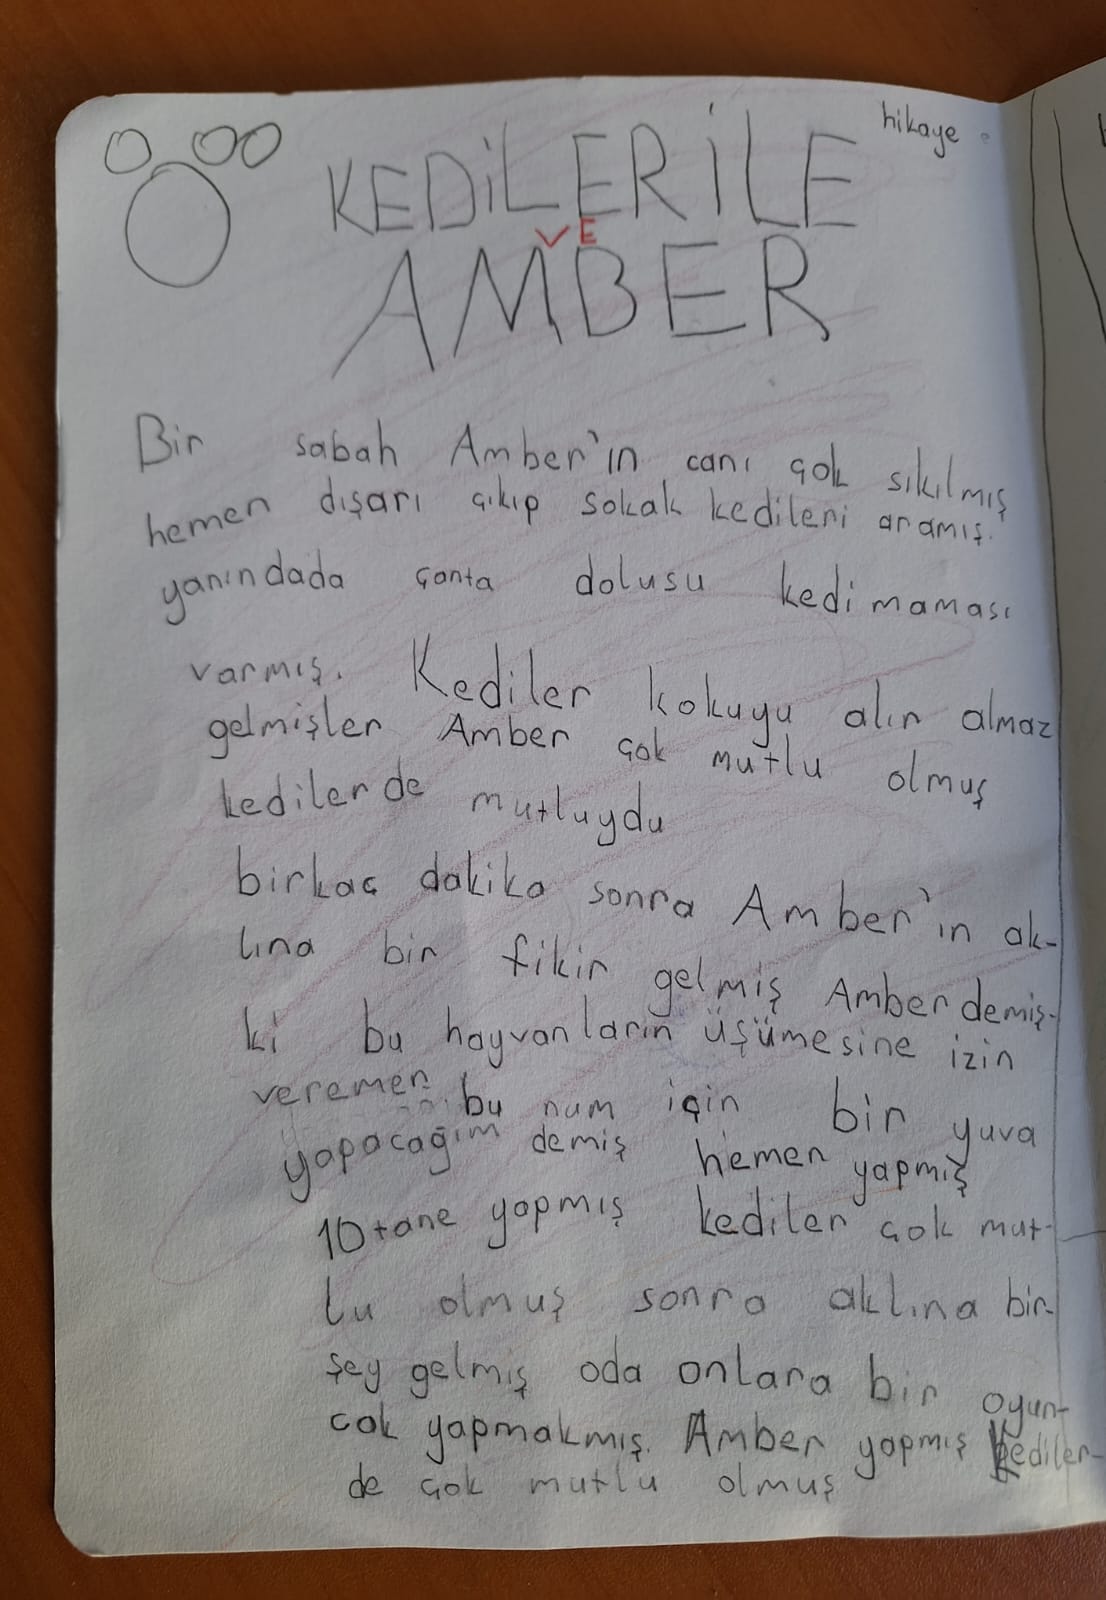 hikaye
KEDİLER İLE
VE
AMBER
Bir sabah Amber'in canı çok sıkılmış
hemen dışarı çıkıp sokak kedileri aramış.
yanındada çanta dolusu kedi maması
varmış. Kediler kokuyu alır almaz
gelmişler Amber çok mutlu olmuş
kedilerde mutluydu
birkaç dakika sonra Amber'in ak-
lına bir fikir gelmiş Amber demiş-
ki bu hayvanların üşümesine izin
veremem bu num için bir yuva
yapacağım demiş hemen yapmış
10 tane yapmış kediler çok mut-
lu olmuş sonra aklına bir-
şey gelmiş oda onlara bir oyun-
cak yapmakmış. Amber yapmış Kediler-
de çok mutlu olmuş